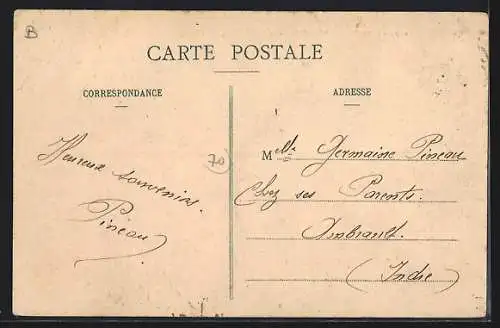 B
CARTE POSTALE
CORRESPONDANCE
ADRESSE
Heureux souvenirs.
Pineau
70
Melle Germaine Pineau
Chez ses Parents.
Ambrault.
(Indre)